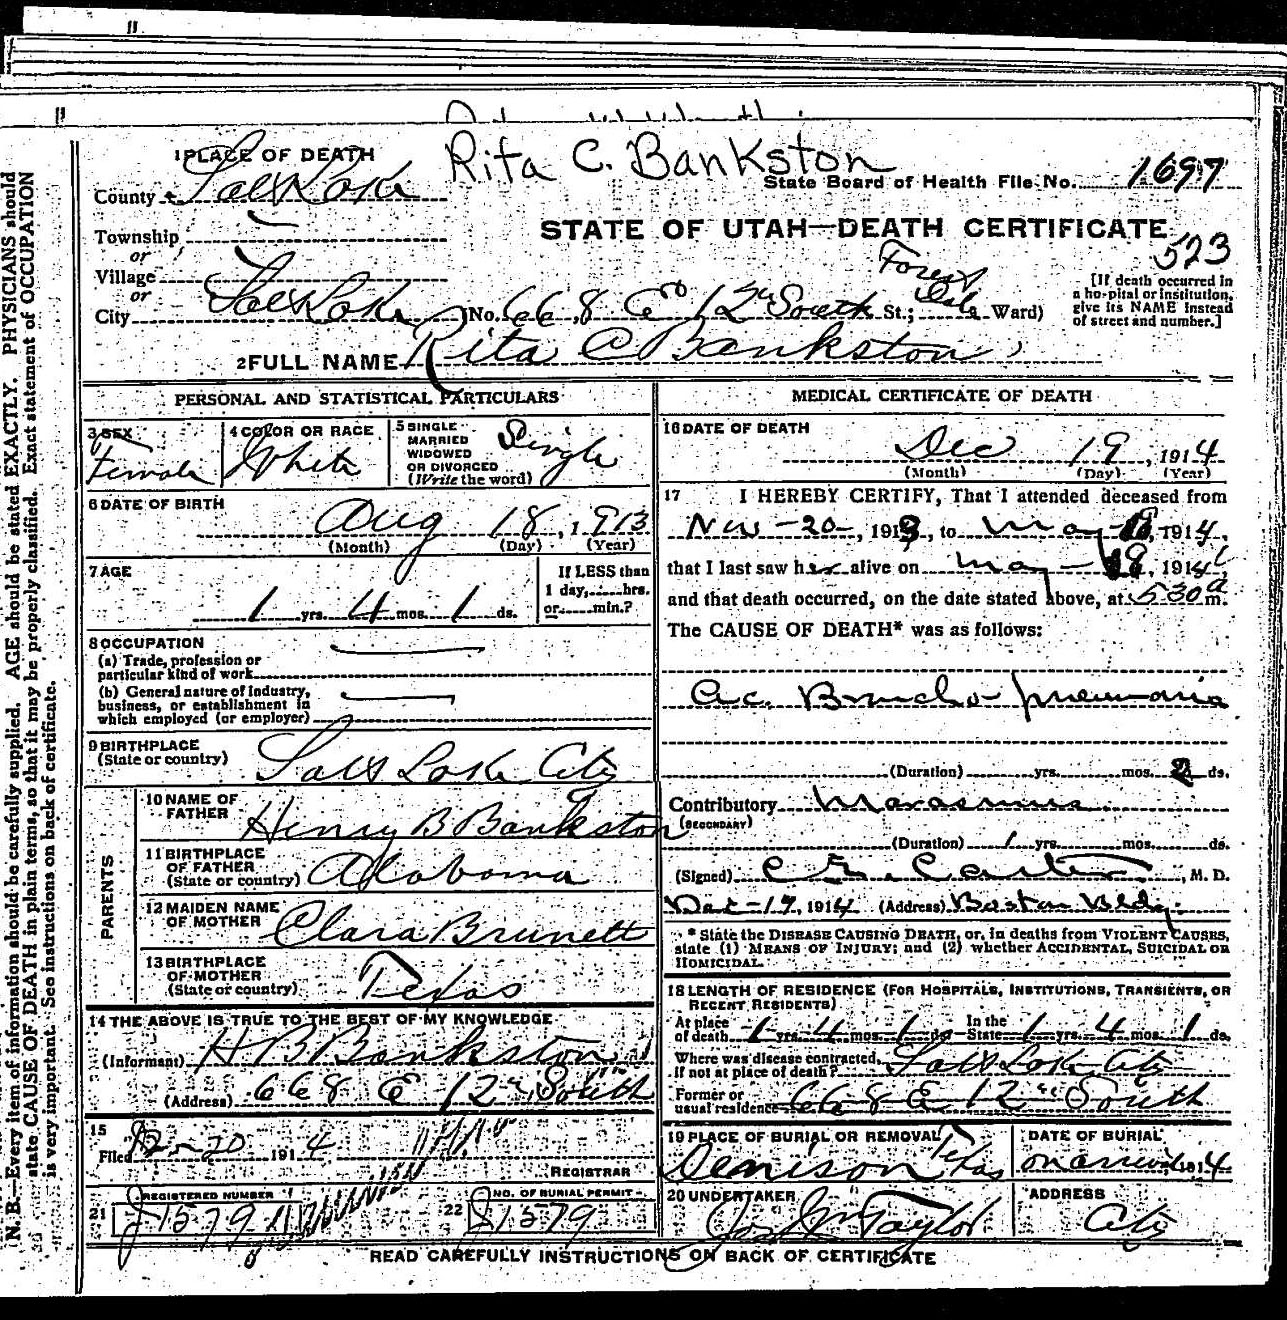 Rita C. Bankston
1 PLACE OF DEATH
County Salt Lake
State Board of Health File No. 1697
Township
or
Village
or
STATE OF UTAH—DEATH CERTIFICATE
523
City Salt Lake No. 668 E 12" South St.; Forest Dale Ward)
[If death occurred in a hospital or institution, give its NAME instead of street and number.]
2 FULL NAME Rita C Bankston
PERSONAL AND STATISTICAL PARTICULARS
3 SEX Female
4 COLOR OR RACE White
5 SINGLE MARRIED WIDOWED OR DIVORCED (Write the word) Single
6 DATE OF BIRTH Aug 18, 1913
(Month) (Day) (Year)
7 AGE
1 yrs. 4 mos. 1 ds.
If LESS than 1 day, hrs. or min.?
8 OCCUPATION
(a) Trade, profession or particular kind of work
(b) General nature of industry, business, or establishment in which employed (or employer)
9 BIRTHPLACE (State or country) Salt Lake City
PARENTS
10 NAME OF FATHER Henry B Bankston
11 BIRTHPLACE OF FATHER (State or country) Alabama
12 MAIDEN NAME OF MOTHER Clara Brunett
13 BIRTHPLACE OF MOTHER (State or country) Texas
14 THE ABOVE IS TRUE TO THE BEST OF MY KNOWLEDGE
(Informant) H B Bankston
(Address) 668 E 12" South
15
Filed 12-20 1914
REGISTRAR
21 REGISTERED NUMBER J1579
22 NO. OF BURIAL PERMIT J1579
MEDICAL CERTIFICATE OF DEATH
16 DATE OF DEATH
Dec 19, 1914
(Month) (Day) (Year)
17 I HEREBY CERTIFY, That I attended deceased from
Nov-20-, 1913, to May 19, 1914,
that I last saw her alive on May-19, 1914
and that death occurred, on the date stated above, at 530 a m.
The CAUSE OF DEATH* was as follows:
Ac. Broncho-pneumonia
(Duration) yrs. mos. 2 ds.
Contributory Marasmus
(SECONDARY)
(Duration) 1 yrs. mos. ds.
(Signed) C. G. Carter, M. D.
Dec-19, 1914 (Address) Boston Bldg.
* State the DISEASE CAUSING DEATH, or, in deaths from VIOLENT CAUSES, state (1) MEANS OF INJURY; and (2) whether ACCIDENTAL, SUICIDAL OR HOMICIDAL.
18 LENGTH OF RESIDENCE (FOR HOSPITALS, INSTITUTIONS, TRANSIENTS, OR RECENT RESIDENTS)
At place of death 1 yrs. 4 mos. 1 ds. In the State 1 yrs. 4 mos. 1 ds.
Where was disease contracted, If not at place of death? Salt Lake City
Former or usual residence 668 E 12" South
19 PLACE OF BURIAL OR REMOVAL Denison Texas
DATE OF BURIAL on arrival 1914
20 UNDERTAKER Jos Wm Taylor
ADDRESS City
READ CAREFULLY INSTRUCTIONS ON BACK OF CERTIFICATE
N. B.—Every item of information should be carefully supplied. AGE should be stated EXACTLY. PHYSICIANS should
state CAUSE OF DEATH in plain terms, so that it may be properly classified. Exact statement of OCCUPATION
is very important. See instructions on back of certificate.